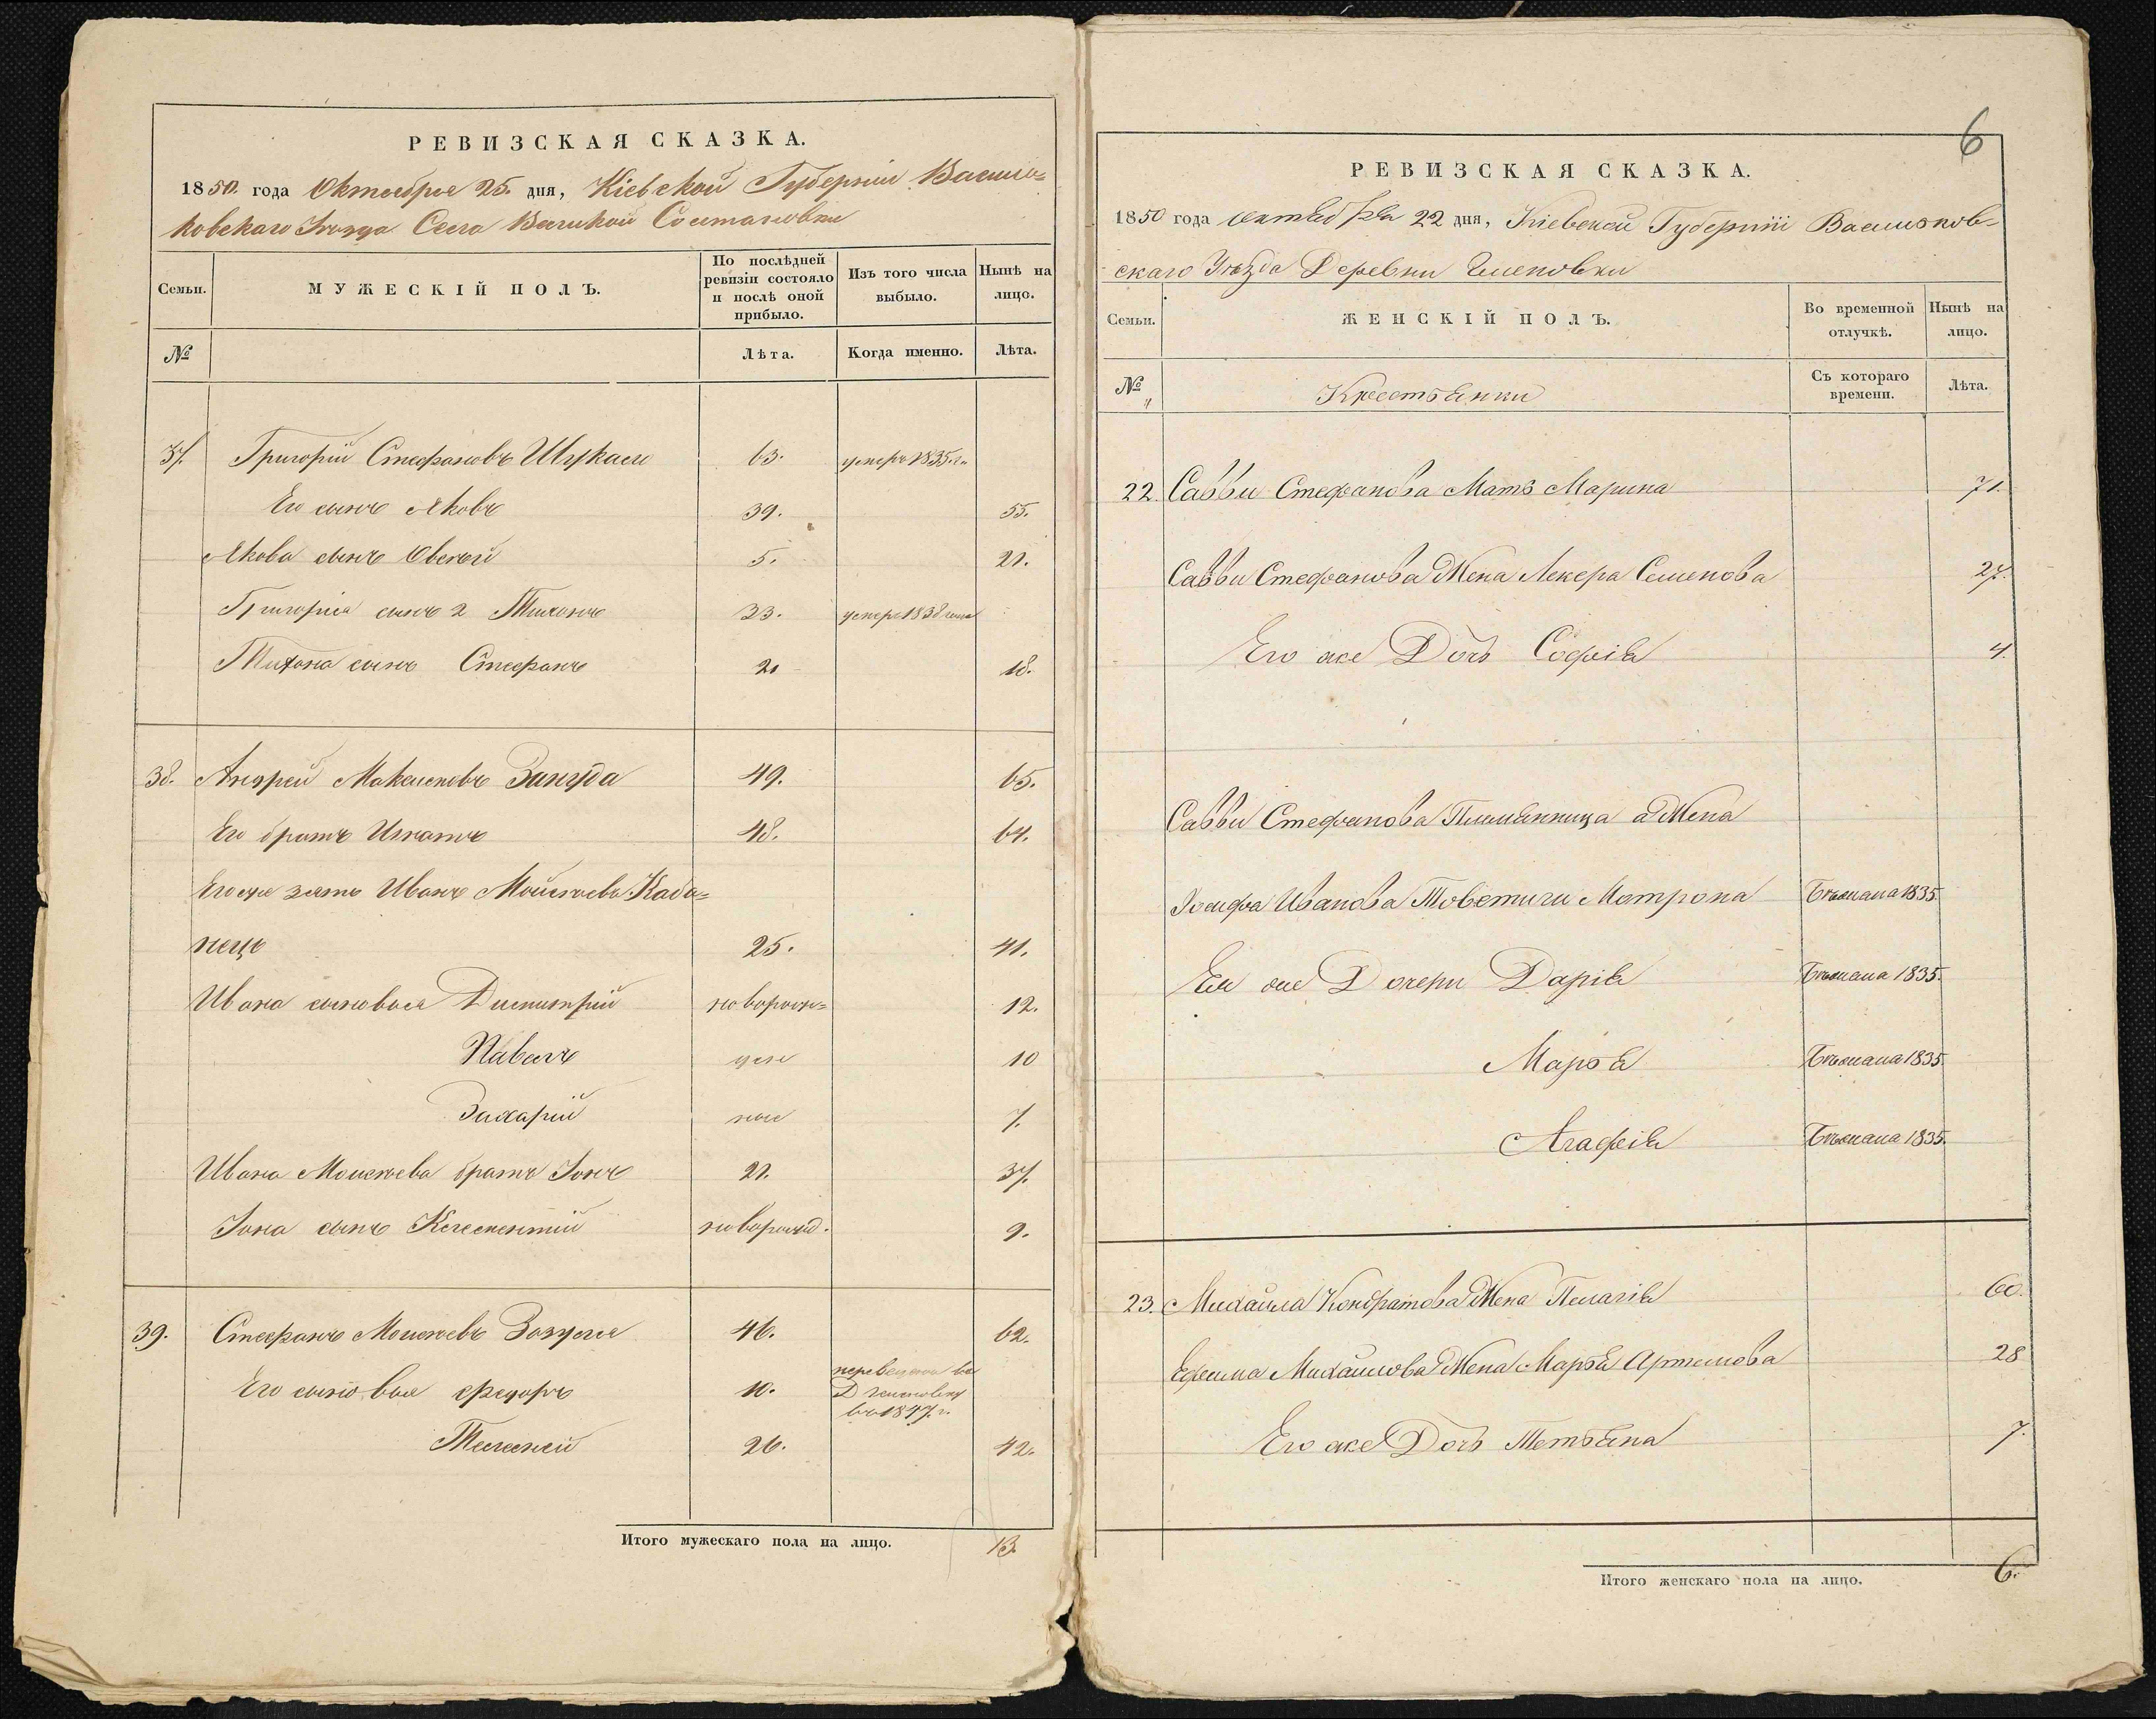 РЕВИЗСКАЯ СКАЗКА.
1850. года Октября 25. дня, Кіевской Губерніи Василь=
ковскаго Уѣзда Села Великой Солтановки
Семьи. МУЖЕСКІЙ ПОЛЪ. По послѣдней ревизіи состояло и послѣ оной прибыло. Изъ того числа выбыло. Нынѣ на лицо.
№ Лѣта. Когда именно. Лѣта.
37. Григорій Стефановъ 63. умеръ 1835. г.
Его сынъ Яковъ 39. 55.
Якова сынъ Овсѣй 5. 21.
Григорія сынъ 2 Тихонъ 23. умеръ 1838 года
Тихона сынъ Стефанъ 2 18.
38. Андрей Максимовъ Зануда 49. 65.
Его братъ Игнатъ 48. 64.
Его же зять Иванъ Мойсѣевъ Када=
нецъ 25. 41.
Ивана сыновья Димитрій новорож= 12.
Павелъ 10
Захарій ные 7.
Ивана Моисѣева братъ Іонъ 21. 37.
Іона сынъ Климентій новорожд. 9.
39. Стефанъ Моисѣевъ Зозуля 46. 62.
Его сыновья Федоръ 10. переведенъ въ Д Чменовку въ 1847. г.
26. 42.
Итого мужескаго пола на лицо. 13.
6
РЕВИЗСКАЯ СКАЗКА.
1850 года октября 22 дня, Кіевской Губерніи Васильков-
скаго Уѣзда Деревни
Семьи. ЖЕНСКІЙ ПОЛЪ. Во временной отлучкѣ. Нынѣ на лицо.
№ Крестьянки Съ котораго времени. Лѣта.
22. Саввы Стефанова Мать Марина 71.
Саввы Стефанова Жена Ликера Семенова 27.
Его же Дочь Софія 4.
Саввы Стефанова Племянница а Жена
Іосифа Иванова Мотрона Бѣжала 1835.
Ея же Дочери Дарія Бѣжала 1835.
Марѳа Бѣжала 1835.
Агафія Бѣжала 1835.
23. Михаила Кондратова Жена Пелагія 60.
Ефима Михаилова Жена Марѳа Артемова 28
Его же Дочь Тетьяна 7.
Итого женскаго пола на лицо. 6.